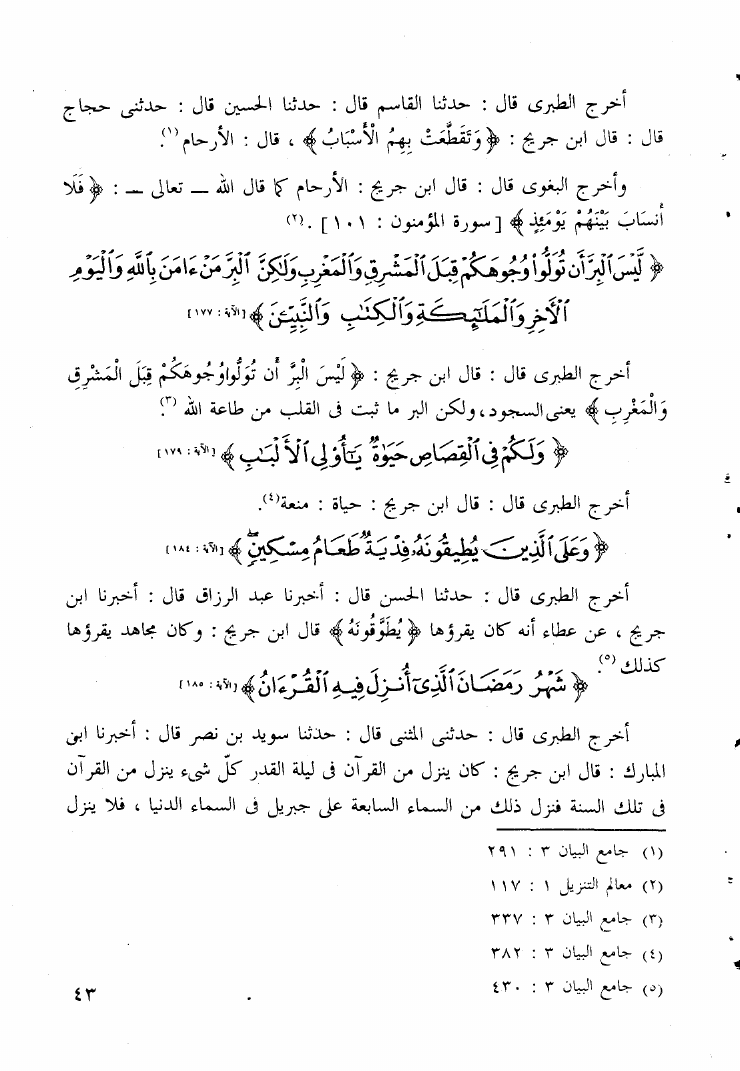 أخرج الطبرى قال : حدثنا القاسم قال : حدثنا الحسين قال : حدثنى حجاج
قال : قال ابن جريج : ﴿ وَتَقَطَّعَتْ بِهِمُ الْأَسْبَابُ ﴾ ، قال : الأرحام (١).
وأخرج البغوى قال : قال ابن جريج : الأرحام كما قال الله ــ تعالى ــ : ﴿ فَلَا
أَنسَابَ بَيْنَهُمْ يَوْمَئِذٍ ﴾ [ سورة المؤمنون : ١٠١ ] . (٢)
﴿ لَّيْسَ ٱلْبِرَّ أَن تُوَلُّوا۟ وُجُوهَكُمْ قِبَلَ ٱلْمَشْرِقِ وَٱلْمَغْرِبِ وَلَٰكِنَّ ٱلْبِرَّ مَنْ ءَامَنَ بِٱللَّهِ وَٱلْيَوْمِ
ٱلْأَخِرِ وَٱلْمَلَٰٓئِكَةِ وَٱلْكِتَٰبِ وَٱلنَّبِيِّـۧنَ ﴾ [الآية : ١٧٧]
أخرج الطبرى قال : قال ابن جريج : ﴿ لَيْسَ الْبِرَّ أَن تُوَلُّوا وُجُوهَكُمْ قِبَلَ الْمَشْرِقِ
وَالْمَغْرِبِ ﴾ يعنى السجود، ولكن البر ما ثبت فى القلب من طاعة الله (٣).
﴿ وَلَكُمْ فِى ٱلْقِصَاصِ حَيَوٰةٌ يَٰٓأُو۟لِى ٱلْأَلْبَٰبِ ﴾ [الآية : ١٧٩]
أخرج الطبرى قال : قال ابن جريج : حياة : منعة(٤).
﴿ وَعَلَى ٱلَّذِينَ يُطِيقُونَهُۥ فِدْيَةٌ طَعَامُ مِسْكِينٍۖ ﴾ [الآية : ١٨٤]
أخرج الطبرى قال : حدثنا الحسن قال : أخبرنا عبد الرزاق قال : أخبرنا ابن
جريج ، عن عطاء أنه كان يقرؤها ﴿ يُطَوَّقُونَهُ ﴾ قال ابن جريج : وكان مجاهد يقرؤها
كذلك (٥).
﴿ شَهْرُ رَمَضَانَ ٱلَّذِىٓ أُنزِلَ فِيهِ ٱلْقُرْءَانُ ﴾ [الآية : ١٨٥]
أخرج الطبرى قال : حدثنى المثنى قال : حدثنا سويد بن نصر قال : أخبرنا ابن
المبارك : قال ابن جريج : كان ينزل من القرآن فى ليلة القدر كلّ شىء ينزل من القرآن
فى تلك السنة فنزل ذلك من السماء السابعة على جبريل فى السماء الدنيا ، فلا ينزل
(١) جامع البيان ٣ : ٢٩١
(٢) معالم التنزيل ١ : ١١٧
(٣) جامع البيان ٣ : ٣٣٧
(٤) جامع البيان ٣ : ٣٨٢
(٥) جامع البيان ٣ : ٤٣٠
٤٣